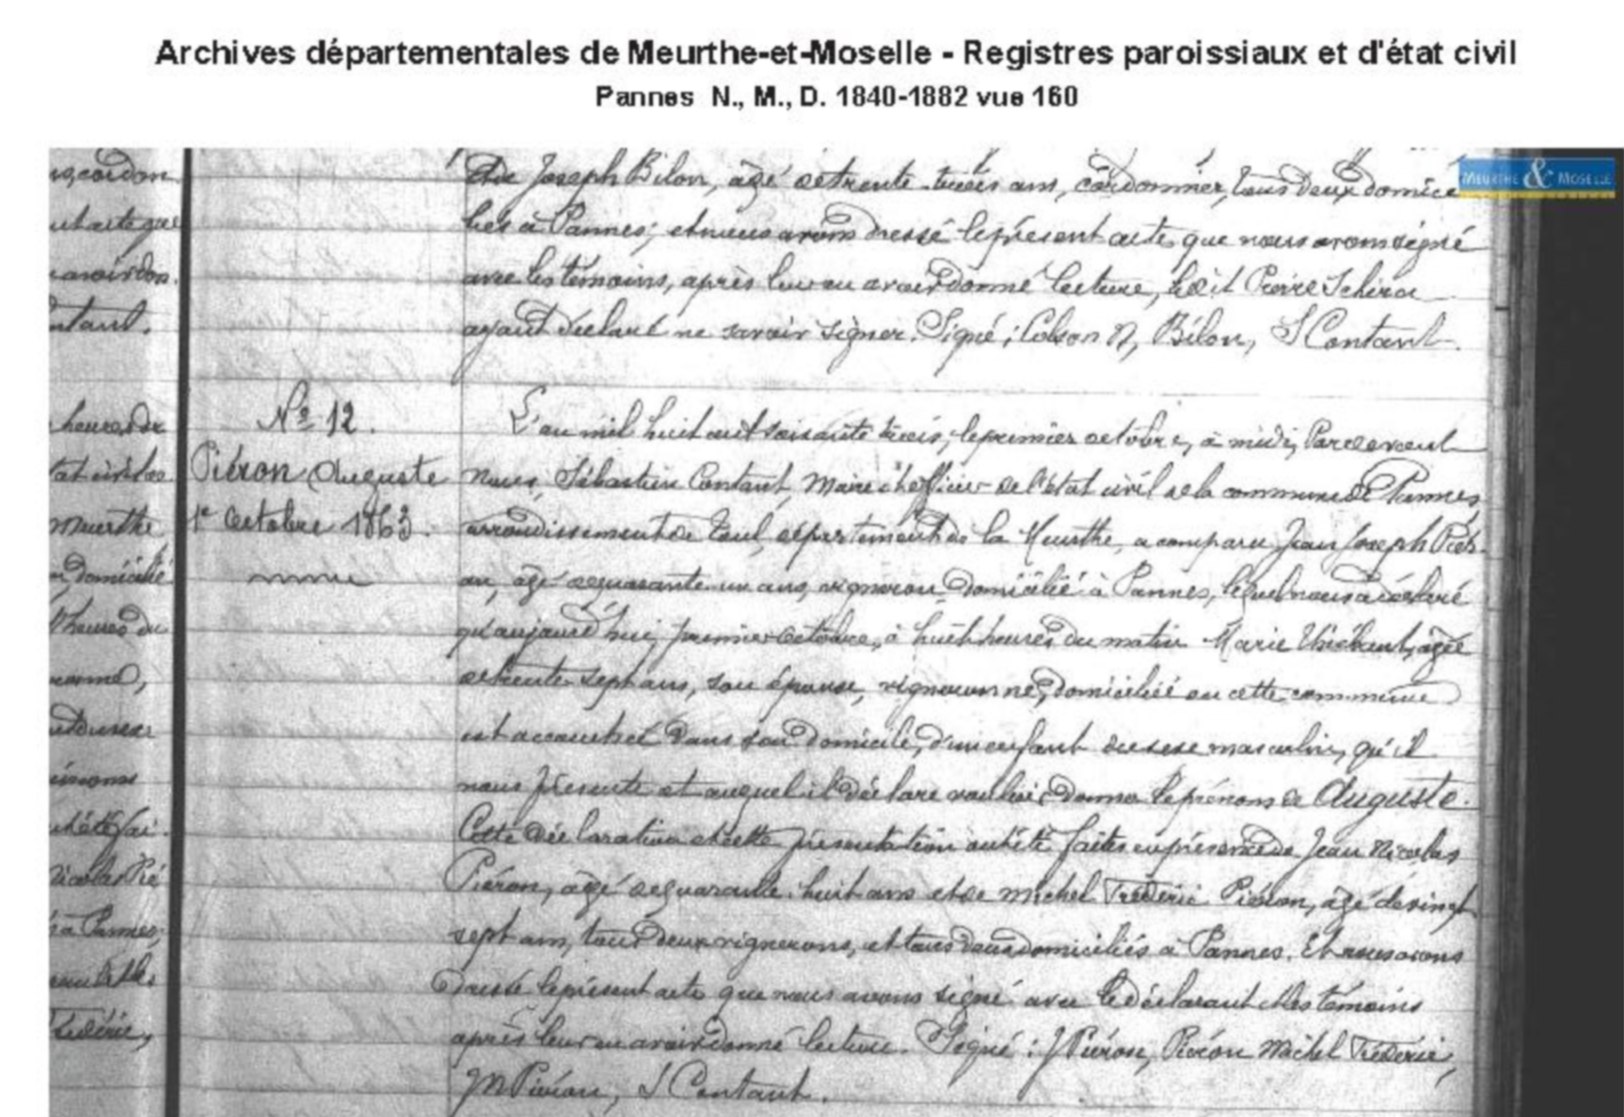 Archives départementales de Meurthe-et-Moselle - Registres paroissiaux et d'état civil
Pannes N., M., D. 1840-1882 vue 160
MEURTHE & MOSELLE
Joseph Bilon, âgé de trente-trois ans, cordonnier, tous deux domici
liés à Pannes; et nous avons dressé le présent acte, que nous avons signé
avec les témoins, après leur en avoir donné lecture, le dit Pierre
ayant déclaré ne savoir signer. Signé: Colson N, Bilon, S Contant.
heures du
Meurthe
domicilié
heures du
à Pannes,
N° 12.
Piéron Auguste
1er Octobre 1863.
L'an mil huit cent soixante trois, le premier octobre, à midi, Pardevant
Nous, Sébastien Contant, Maire et officier de l'état civil de la commune de Pannes
arrondissement de Toul, département de la Meurthe, a comparu Jean Joseph Piér-
on, âgé de quarante-un ans, vigneron, domicilié à Pannes, lequel nous a déclaré
qu'aujourd'hui, premier Octobre, à huit heures du matin Marie, âgée
de trente-sept ans, son épouse, vigneronne, domiciliée en cette commune
est accouchée dans son domicile, d'un enfant du sexe masculin, qu'il
nous présente et auquel il déclare vouloir donner le prénom de Auguste.
Cette déclaration et cette présentation ont été faites en présence de Jean Nicolas
Piéron, âgé de quarante-huit ans et de Michel Fréderic Piéron, âgé de vingt
sept ans, tous deux vignerons, et tous deux domiciliés à Pannes. Et nous avons
dressé le présent acte que nous avons signé avec le déclarant et les témoins
après leur en avoir donné lecture. Signé: J Piéron, Piéron Michel Fréderic,
JN Piéron, S Contant.